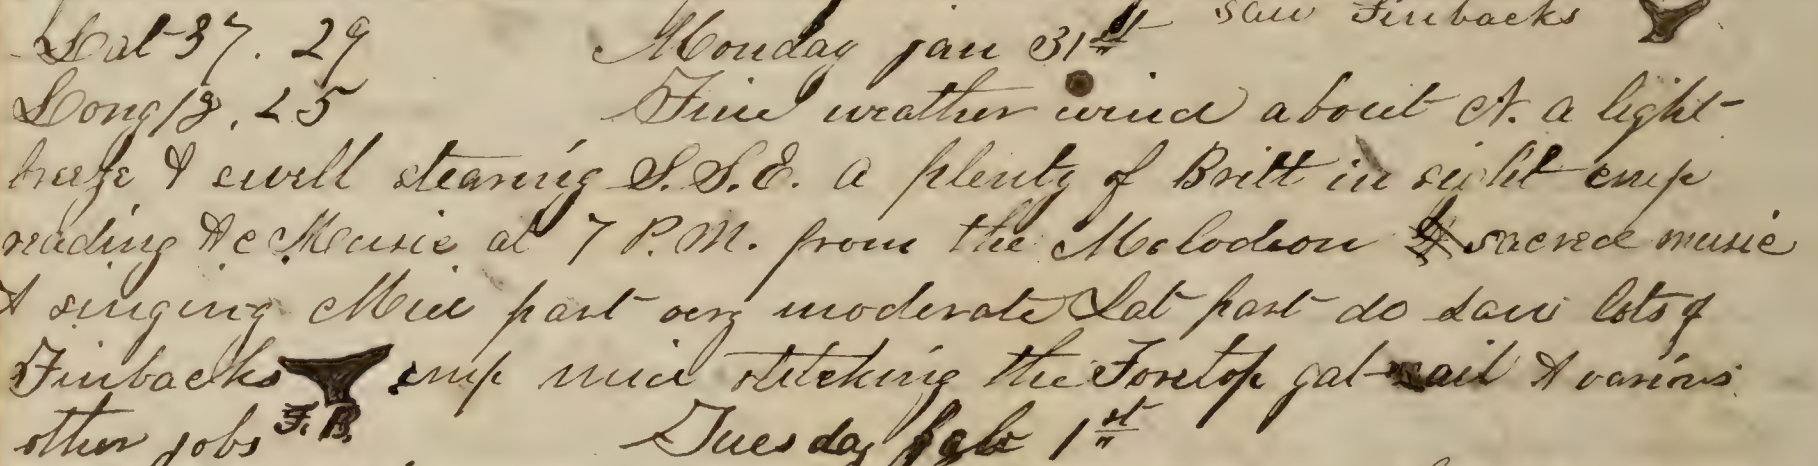 saw Finbacks
Lat 37. 29 Monday jan 31st
Long 18. 25 Fine weather wind about N. a light
breeze & swell stearing S.S.E. a plenty of Britt in sight emp
reading &c Music at 7 P.M. from the Melodeon & sacred music
& singing Mid part very moderate Lat part do saw lots of
Finbacks emp mid stitching the Foretop gal-sail & various
other jobs F.B. Tuesday feb 1st